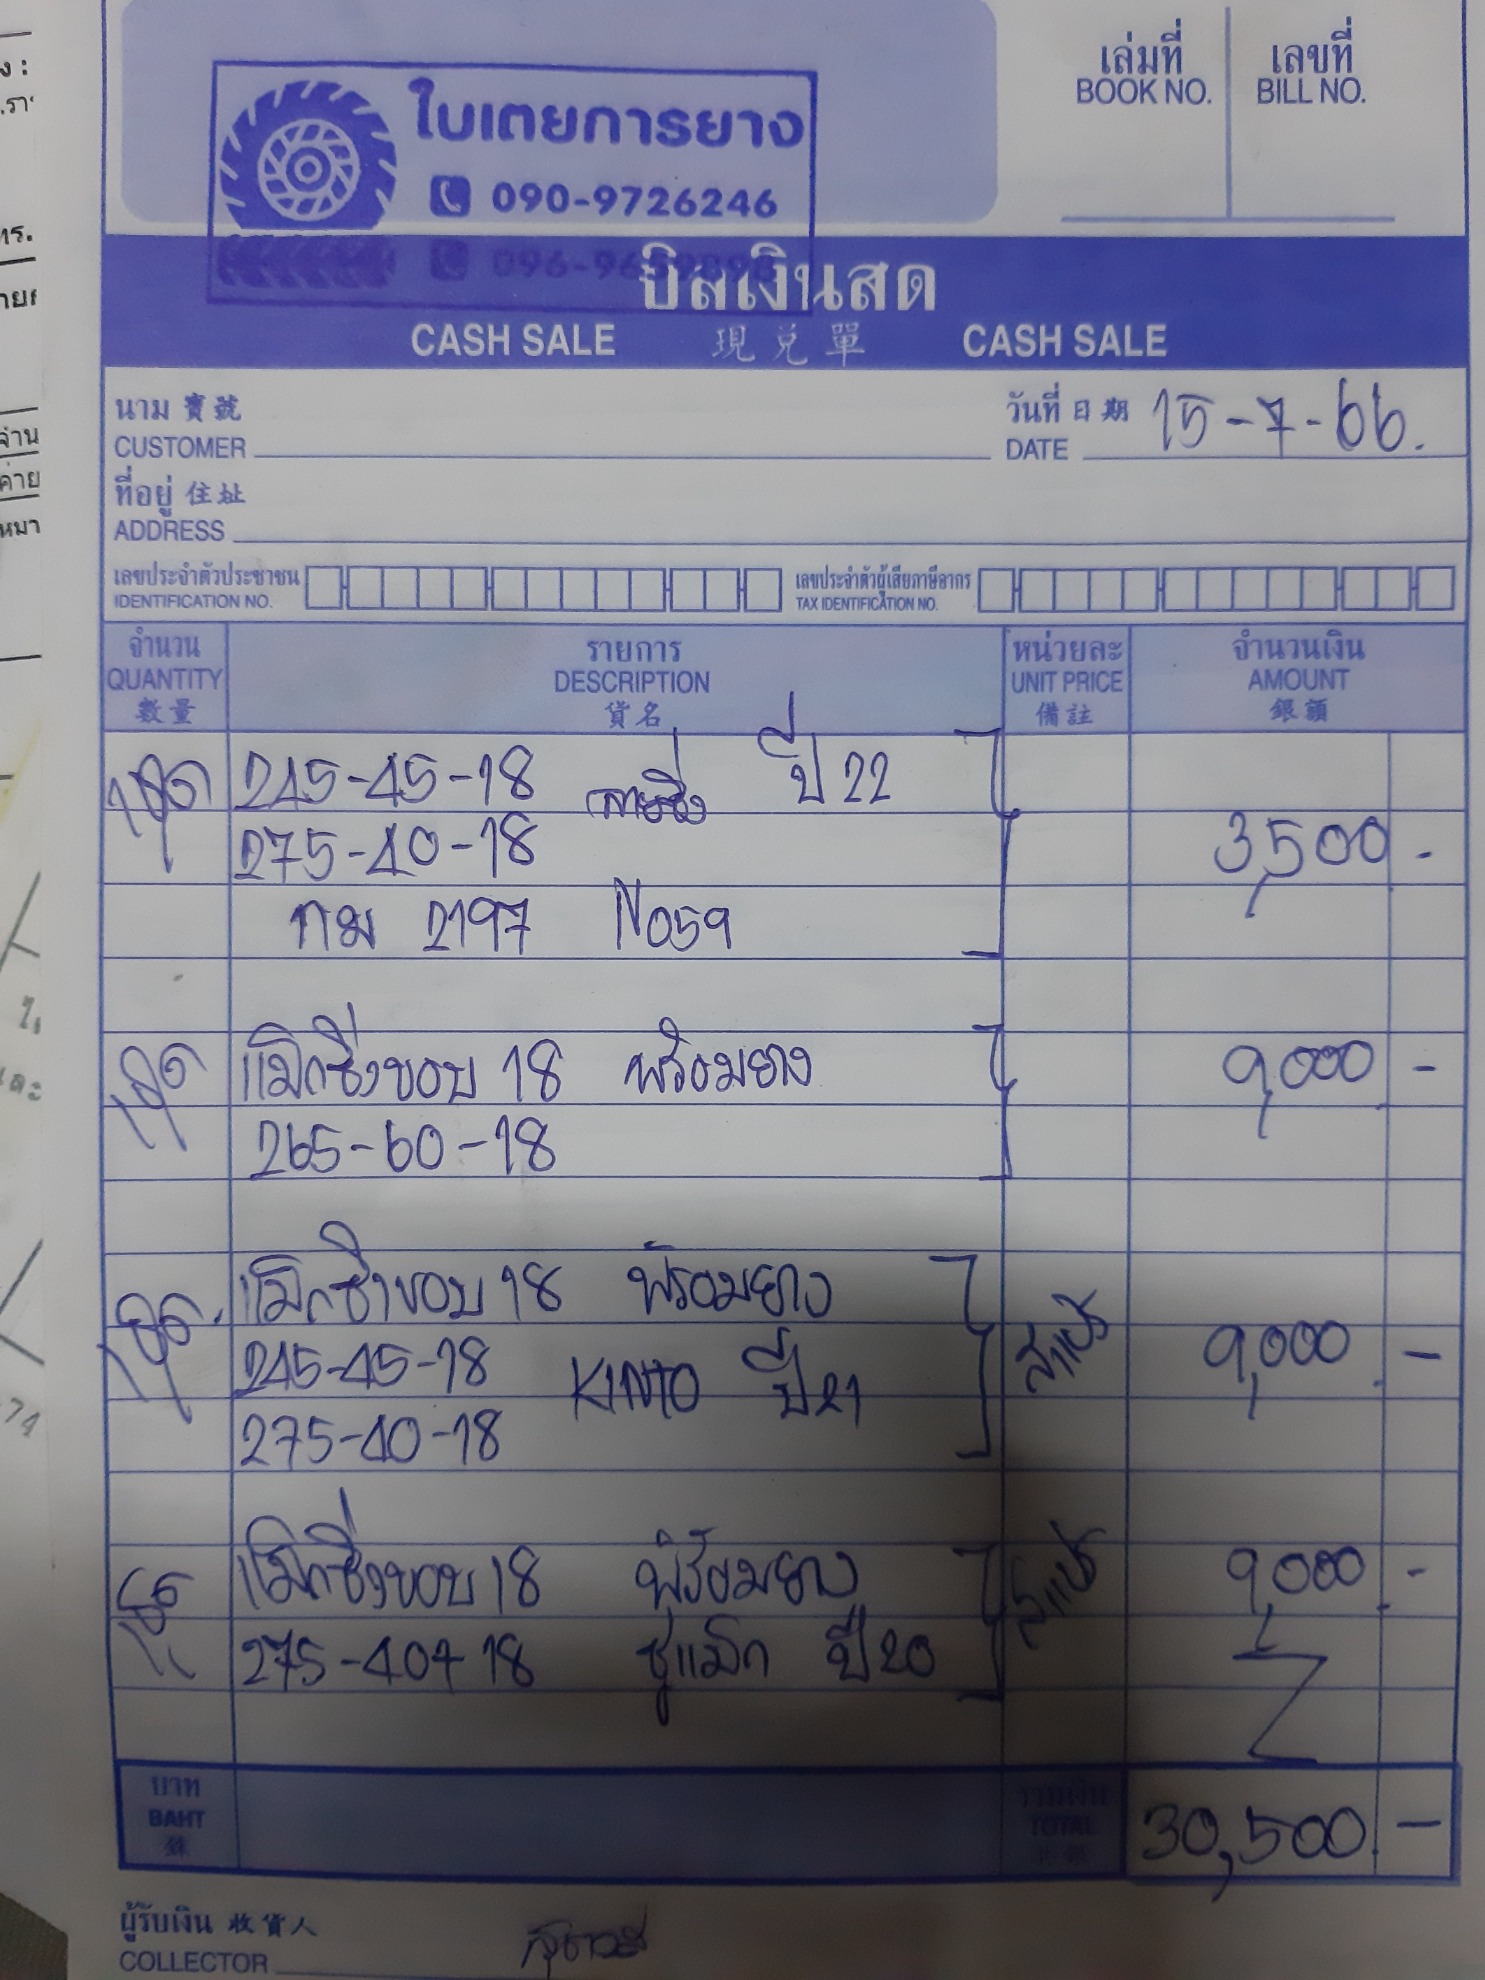 ใบเตยการยาง
090-9726246
เล่มที่ เลขที่
BOOK NO. BILL NO.
บิลเงินสด
CASH SALE 現兌單 CASH SALE
นาม 寶號 วันที่ 日期 15-7-66.
CUSTOMER DATE
ที่อยู่ 住址
ADDRESS
เลขประจำตัวประชาชน เลขประจำตัวผู้เสียภาษีอากร
IDENTIFICATION NO. TAX IDENTIFICATION NO.
จำนวน รายการ หน่วยละ จำนวนเงิน
QUANTITY DESCRIPTION UNIT PRICE AMOUNT
數量 貨名 備註 銀額
1 ชุด 245-45-18 ปี 22
275-40-18 3,500 -
กม 2197 No59
1 ชุด แม็กซิ่งขอบ 18 พร้อมยาง 9,000 -
265-60-18
1 ชุด แม็กซิ่งขอบ 18 พร้อมยาง
245-45-18 KINTO ปี 21 9,000 -
275-40-18
ชุด แม็กซิ่งขอบ 18 พร้อมยาง 9,000 -
275-40-18 ปี 20
บาท รวมเงิน
BAHT TOTAL 30,500 -
ผู้รับเงิน 收貨人
COLLECTOR